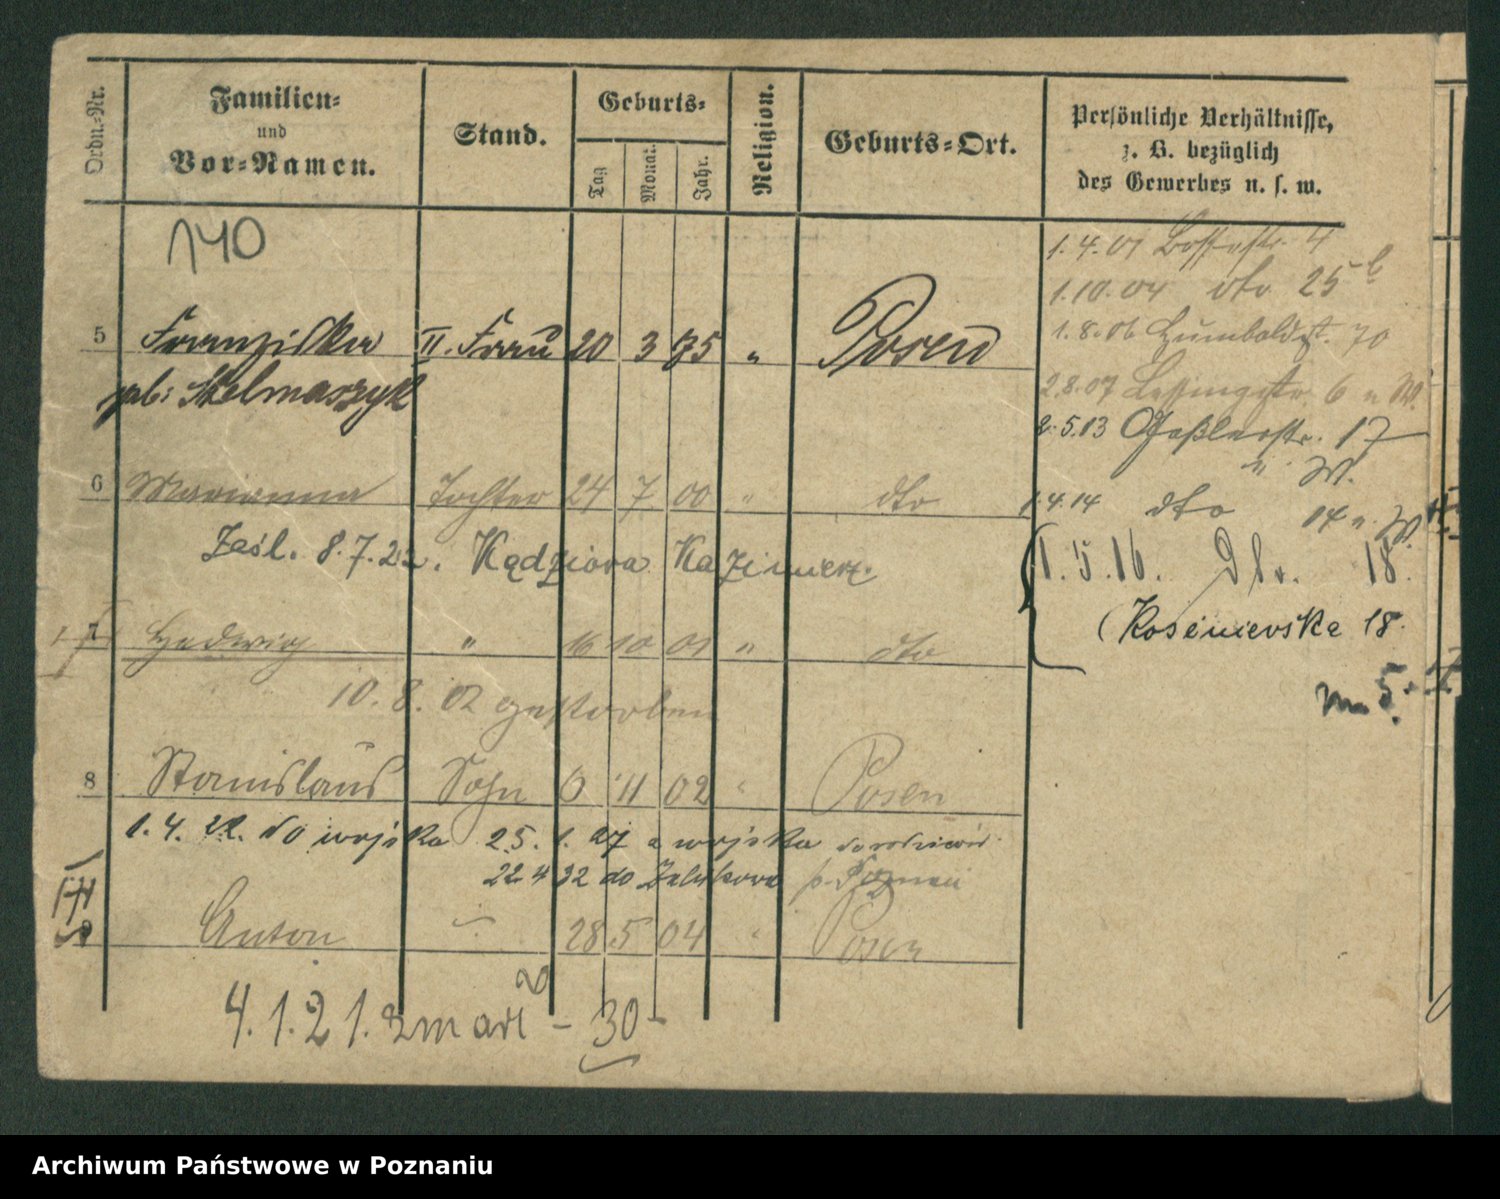 Ordn.-Nr.
Familien-
und
Vor-Namen.
Stand.
Geburts-
Tag
Monat.
Jahr.
Religion.
Geburts-Ort.
Persönliche Verhältnisse,
z. B. bezüglich
des Gewerbes u. s. w.
140
1.4.01 4
1.10.04 dto 25 b
1.8.06 Humboldtst. 70
2.8.07 Lessingstr. 6 u W.
2.5.13 Gaßlerstr. 17
u. W.
1.4.14 dto 14 u. W.
1.5.16. 18.
(Kosenievske 18.
5 Franziska II. Frau 20 3 75 " Posen
geb: Stelmaszyk
6 Marianna Tochter 24 7 00 " dto
Zaśl. 8.7.22. Kądziora Kazimierz.
7 Hedwig " 16 10 01 " dto
10.8.02 gestorben
8 Stanislaus Sohn 6 11 02 " Posen
1.4.22. do wojska 25.1.27 z wojska do rodziców
22 4 32 do p. Poznań
9 Anton " 28 5 04 " Posen
4.1.21. zmarł - 30 -
Archiwum Państwowe w Poznaniu